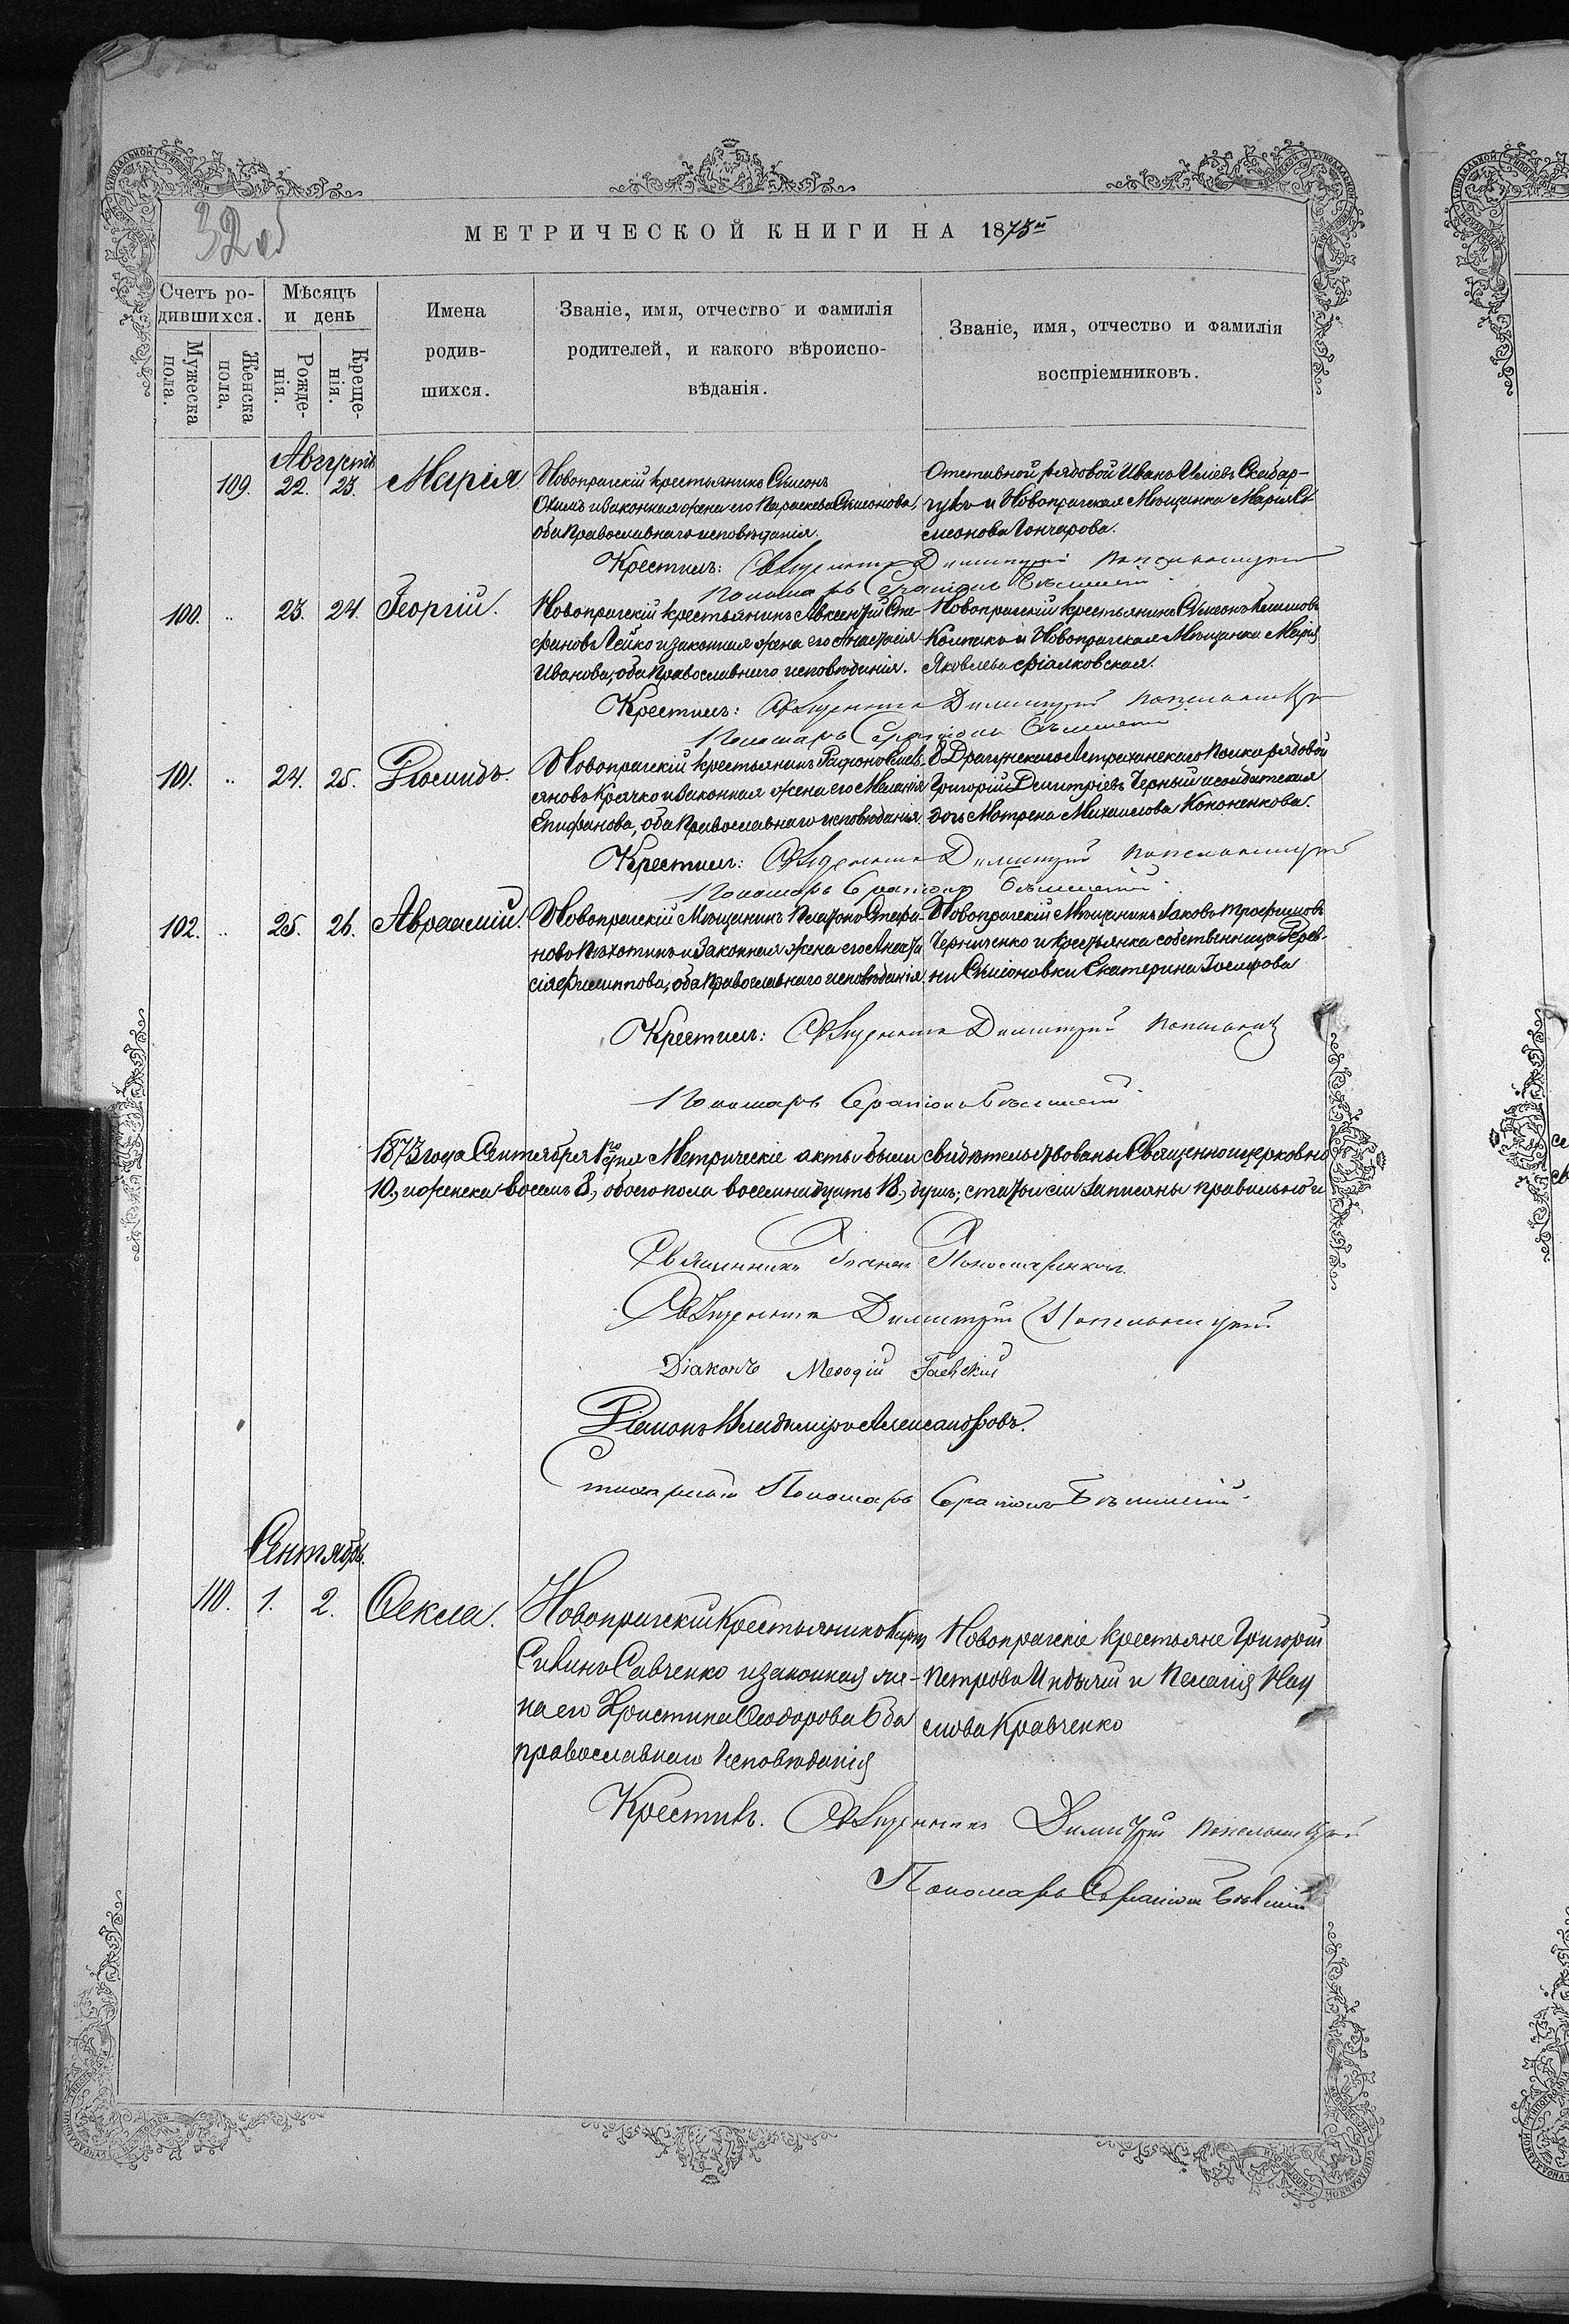 32 об
МЕТРИЧЕСКОЙ КНИГИ НА 1873й
Счетъ ро-
дившихся.
Мужеска
пола.
Женска
пола,
Мѣсяцъ
и день
Рожде-
нія.
Креще-
нія.
Имена
родив-
шихся.
Званіе, имя, отчество и фамилія
родителей, и какого вѣроиспо-
вѣданія.
Званіе, имя, отчество и фамилія
воспріемниковъ.
Августъ
109. 22. 23. Марія
Новопрагскій крестьянинъ Сѵмеонъ
и законная жена его Параскева Сѵмеонова,
оба Православнаго исповѣданія.
Отставной рядовой Иванъ Иліевъ Скибар-
чукъ и Новопрагская Мѣщанка Марія Сѵ-
меонова Гончарова.
Крестилъ: Священникъ Димитрій
Пономарь Серапіонъ
100. „ 23. 24. Георгій.
Новопрагскій крестьянинъ Авксентій Сте-
фановъ Гейко и законная жена его Анастасія
Иванова, оба Православнаго исповѣданія.
Новопрагскій крестьянинъ Сѵмеонъ Климовъ
и Новопрагская Мѣщанка Марія
Яковлева Фіалковская.
Крестилъ: Священникъ Димитрій
Пономарь Серапіонъ
101. „ 24. 25. Діомидъ.
Новопрагскій крестьянинъ
Крячко и законная жена его Меланія
Епифанова, оба Православнаго исповѣданія.
8 Драгунскаго Астраханскаго Полка рядовой
Григорій Димитріевъ Черный и солдатская
дочь Мотрена Михаилова Кононенкова.
Крестилъ: Священникъ Димитрій
Пономарь Серапіонъ
102. „ 25. 26. Авраамій.
Новопрагскій Мѣщанинъ Платонъ Стефа-
новъ Пѣхотинъ и законная жена его Анаста
сія Филиппова, оба Православнаго исповѣданія.
Новопрагскій Мѣщанинъ Іаковъ Трофимовъ
Черниченко и крестьянка собственница Дерев-
ни Сѵмеоновки Екатерина Іосифова
Крестилъ: Священникъ Димитрій
Пономарь Серапіонъ
1873 года Сентября 1го дня Метрическіе акты были свидѣтельствованы Священноицерковно
10., и женска восемь 8., обоего пола восемнадцать 18., душъ; статьи сіи записаны правильно и
Священникъ Іоаннъ Пономаренковъ
Священникъ Димитрій
Діаконъ Меѳодій Гаевскій
Діаконъ Владиміръ Александровъ.
Стихарный Пономарь Серапіонъ
Сентябрь.
110. 1. 2. Ѳекла.
Новопрагскій Крестьянинъ Карпъ
Савинъ Савченко и законная же-
на его Христина Ѳеодорова Оба
православнаго Исповѣданія
Новопрагскіе крестьяне Григорій
Петровъ и Пелагія Нау
мова Кравченко
Крестилъ. Священникъ Димитрій
Пономарь Серапіонъ